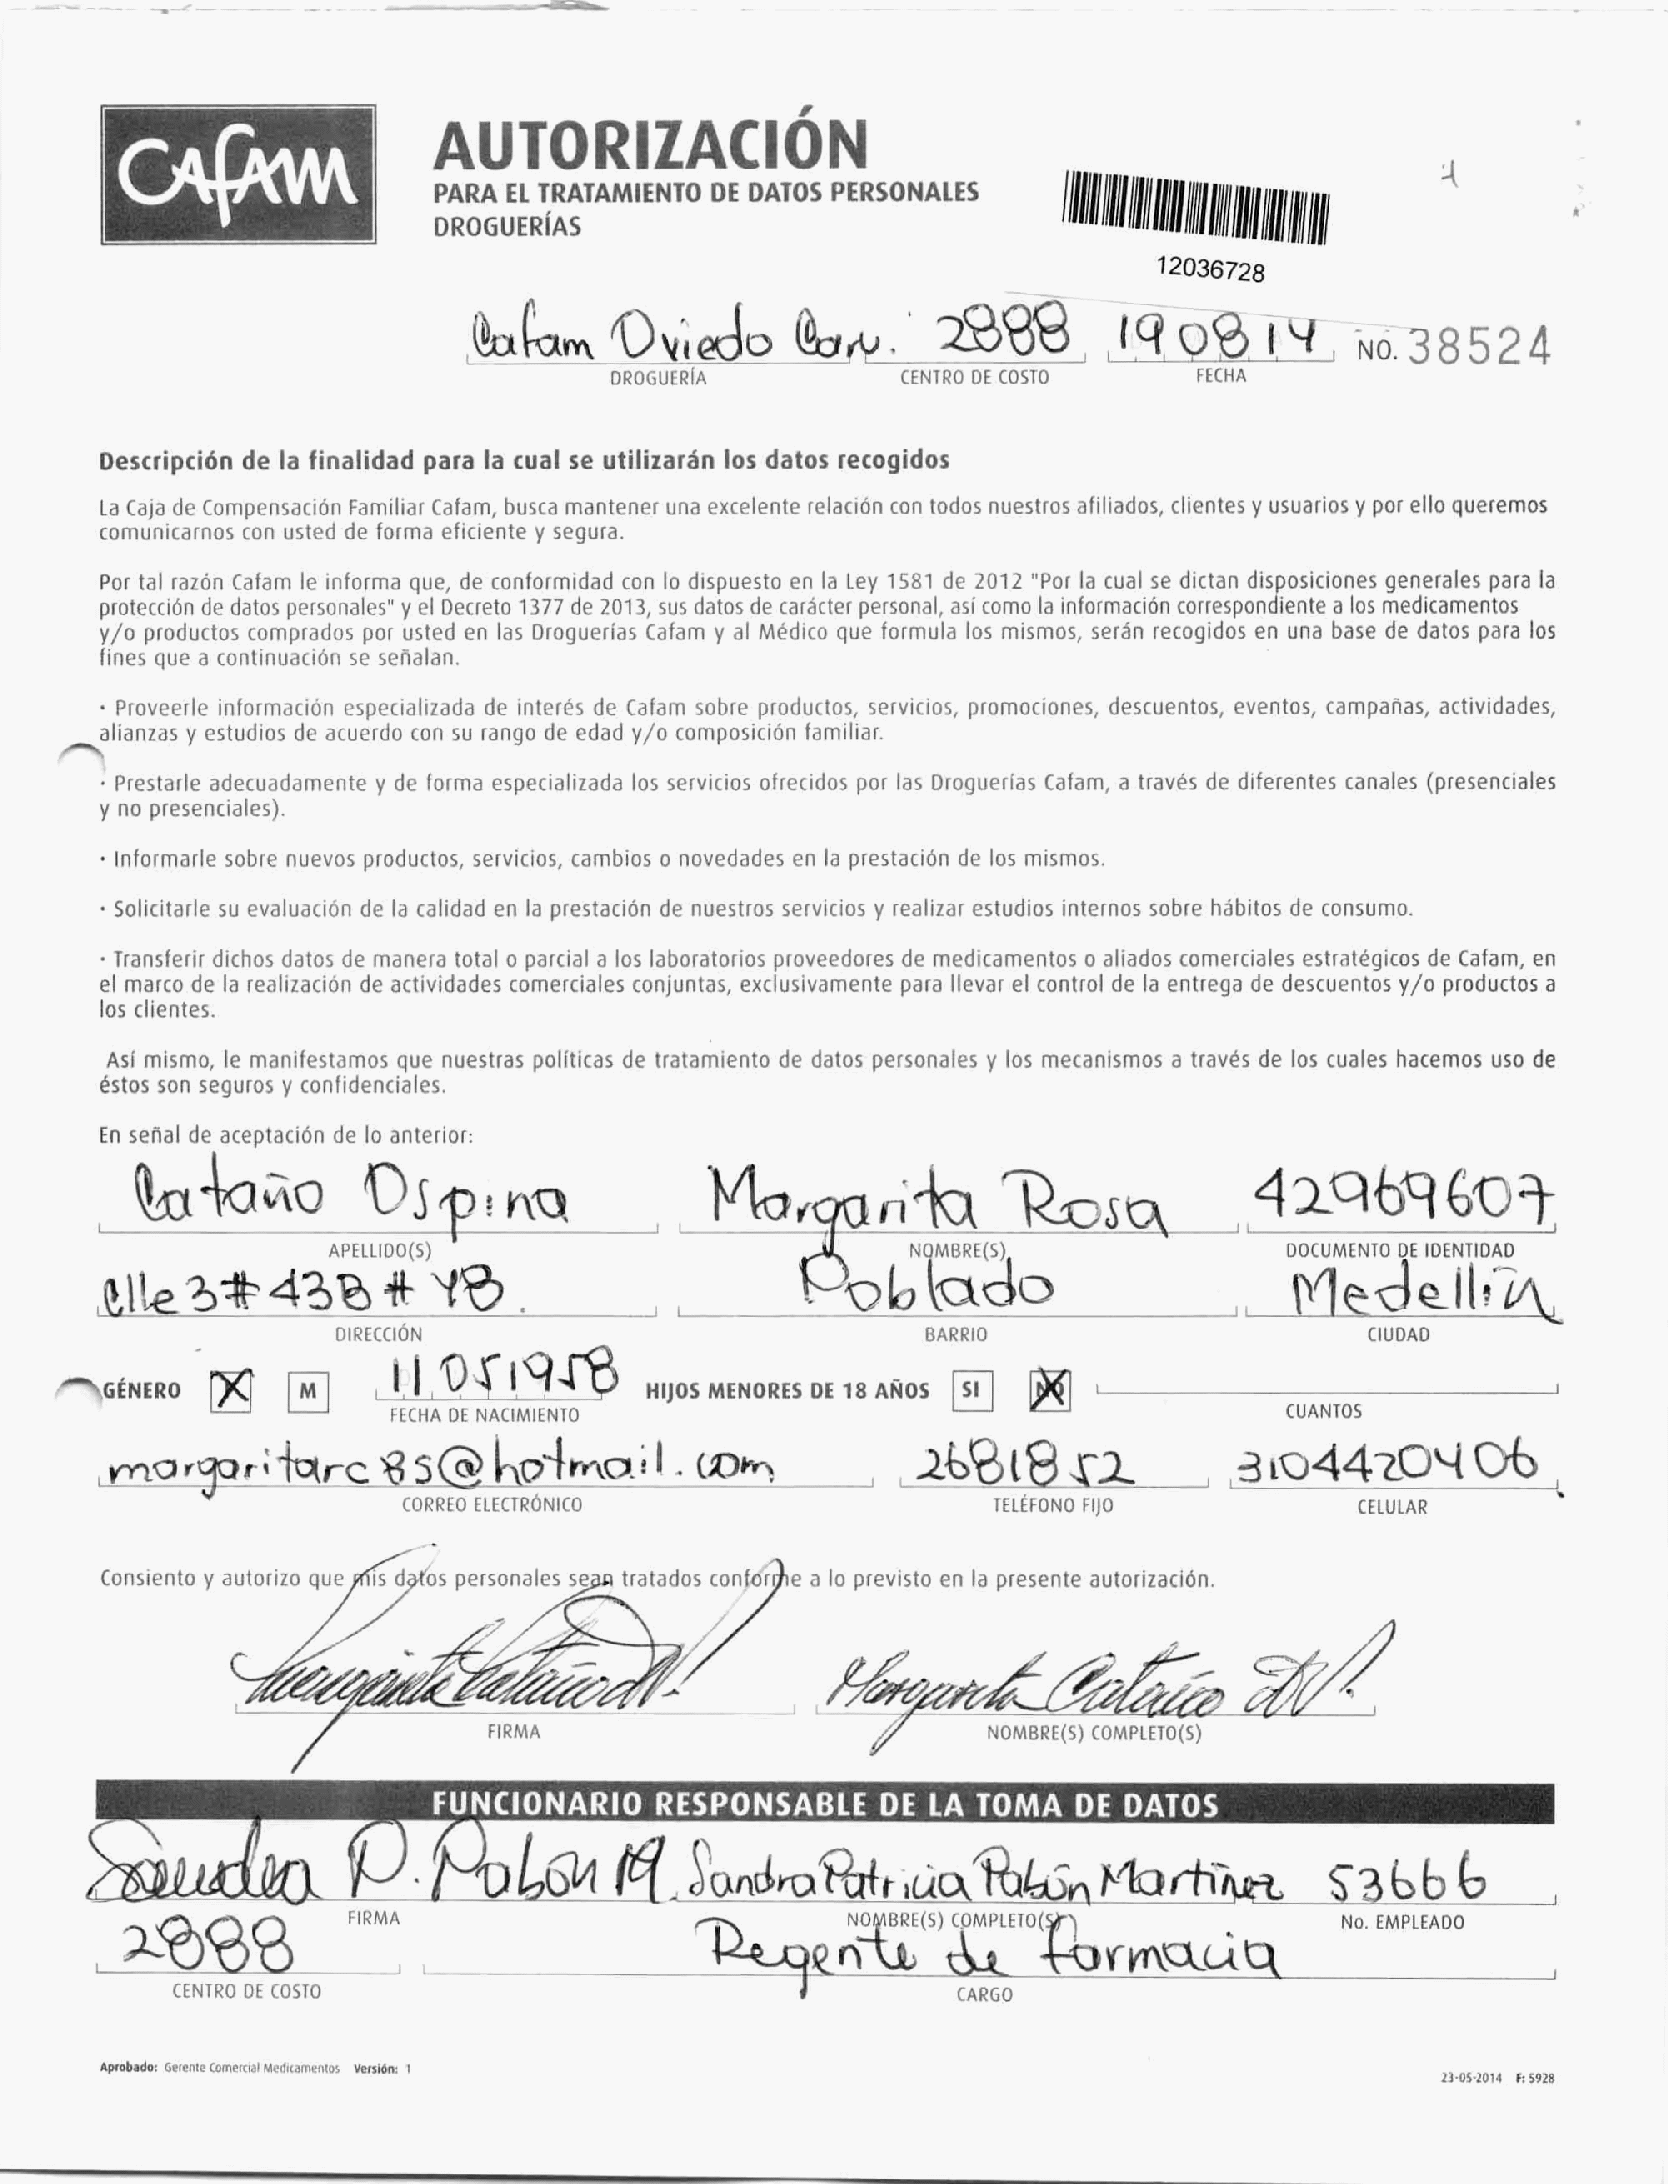 Cafam
AUTORIZACIÓN
PARA EL TRATAMIENTO DE DATOS PERSONALES
DROGUERÍAS
12036728
Cafam Oviedo 2888 190814 NO. 38524
DROGUERÍA CENTRO DE COSTO FECHA
Descripción de la finalidad para la cual se utilizarán los datos recogidos
La Caja de Compensación Familiar Cafam, busca mantener una excelente relación con todos nuestros afiliados, clientes y usuarios y por ello queremos
comunicarnos con usted de forma eficiente y segura.
Por tal razón Cafam le informa que, de conformidad con lo dispuesto en la Ley 1581 de 2012 "Por la cual se dictan disposiciones generales para la
protección de datos personales" y el Decreto 1377 de 2013, sus datos de carácter personal, así como la información correspondiente a los medicamentos
y/o productos comprados por usted en las Droguerías Cafam y al Médico que formula los mismos, serán recogidos en una base de datos para los
fines que a continuación se señalan.
· Proveerle información especializada de interés de Cafam sobre productos, servicios, promociones, descuentos, eventos, campañas, actividades,
alianzas y estudios de acuerdo con su rango de edad y/o composición familiar.
· Prestarle adecuadamente y de forma especializada los servicios ofrecidos por las Droguerías Cafam, a través de diferentes canales (presenciales
y no presenciales).
· Informarle sobre nuevos productos, servicios, cambios o novedades en la prestación de los mismos.
· Solicitarle su evaluación de la calidad en la prestación de nuestros servicios y realizar estudios internos sobre hábitos de consumo.
· Transferir dichos datos de manera total o parcial a los laboratorios proveedores de medicamentos o aliados comerciales estratégicos de Cafam, en
el marco de la realización de actividades comerciales conjuntas, exclusivamente para llevar el control de la entrega de descuentos y/o productos a
los clientes.
Así mismo, le manifestamos que nuestras políticas de tratamiento de datos personales y los mecanismos a través de los cuales hacemos uso de
éstos son seguros y confidenciales.
En señal de aceptación de lo anterior:
Cataño Ospina Margarita Rosa 42969607
APELLIDO(S) NOMBRE(S) DOCUMENTO DE IDENTIDAD
Clle 3 # 43B # YB Poblado Medellín
DIRECCIÓN BARRIO CIUDAD
GÉNERO X M 11051958 HIJOS MENORES DE 18 AÑOS SI NO
FECHA DE NACIMIENTO CUANTOS
margaritarc85@hotmail.com 2681852 3104420406
CORREO ELECTRÓNICO TELÉFONO FIJO CELULAR
Consiento y autorizo que mis datos personales sean tratados conforme a lo previsto en la presente autorización.
Margarita Cataño
FIRMA NOMBRE(S) COMPLETO(S)
FUNCIONARIO RESPONSABLE DE LA TOMA DE DATOS
Sandra P. Pabon M. Sandra Patricia Pabón Martínez 53666
FIRMA NOMBRE(S) COMPLETO(S) No. EMPLEADO
2888 Regente de farmacia
CENTRO DE COSTO CARGO
Aprobado: Gerente Comercial Medicamentos Versión: 1
23-05-2014 F: 5928